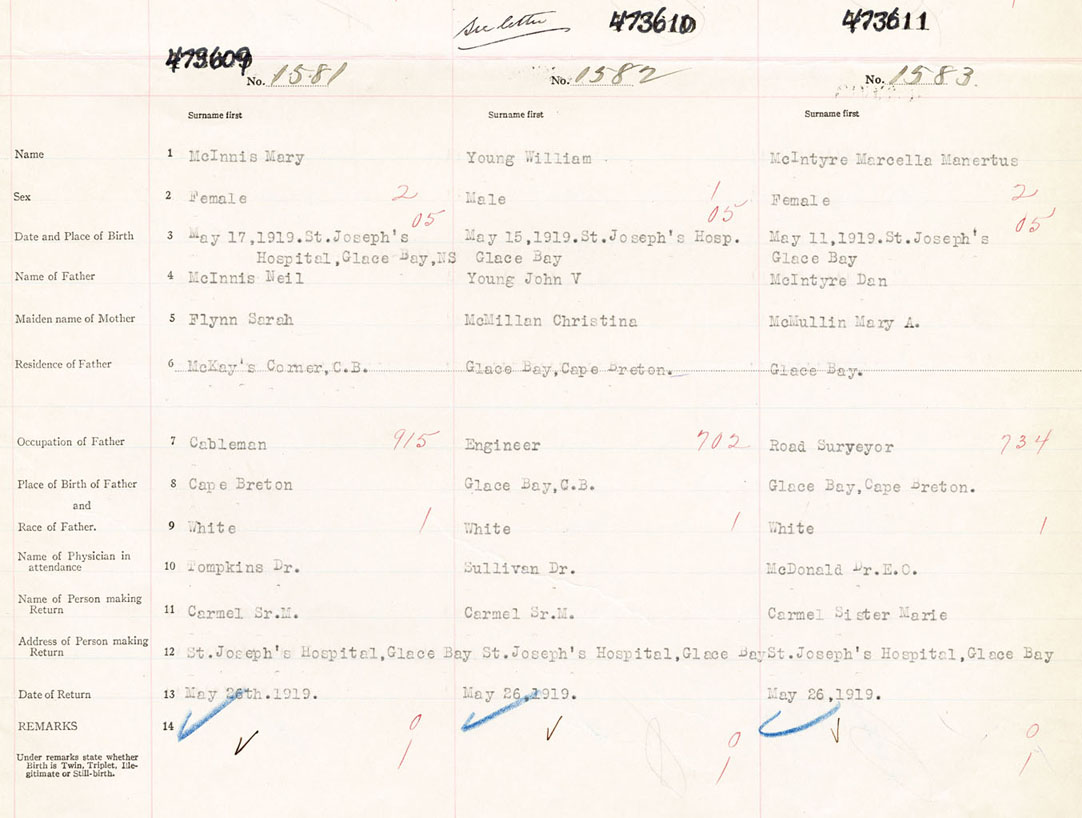 See letter 473610 473611
473609
No. 1581 No. 1582 No. 1583
Surname first Surname first Surname first
Name 1 McInnis Mary Young William McIntyre Marcella Manertus
Sex 2 Female 2 Male 1 Female 2
05 05 05
Date and Place of Birth 3 May 17,1919.St.Joseph's May 15,1919.St.Joseph's Hosp. May 11,1919.St.Joseph's
Hospital,Glace Bay,NS Glace Bay Glace Bay
Name of Father 4 McInnis Neil Young John V McIntyre Dan
Maiden name of Mother 5 Flynn Sarah McMillan Christina McMullin Mary A.
Residence of Father 6 McKay's Corner,C.B. Glace Bay,Cape Breton. Glace Bay.
Occupation of Father 7 Cableman 915 Engineer 702 Road Surveyor 734
Place of Birth of Father 8 Cape Breton Glace Bay,C.B. Glace Bay,Cape Breton.
and
Race of Father. 9 White 1 White 1 White 1
Name of Physician in
attendance 10 Tompkins Dr. Sullivan Dr. McDonald Dr.E.O.
Name of Person making
Return 11 Carmel Sr.M. Carmel Sr.M. Carmel Sister Marie
Address of Person making
Return 12 St.Joseph's Hospital,Glace Bay St.Joseph's Hospital,Glace Bay St.Joseph's Hospital,Glace Bay
Date of Return 13 May 26th.1919. May 26,1919. May 26,1919.
REMARKS 14 0 0 0
Under remarks state whether
Birth is Twin, Triplet, Ille-
gitimate or Still-birth. 1 1 1